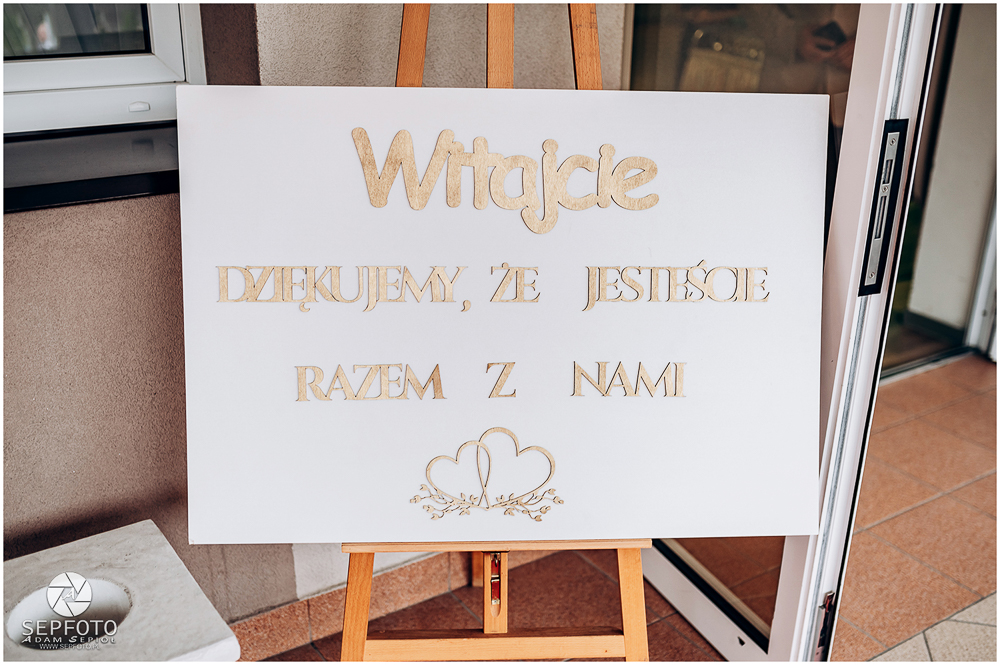 Witajcie
DZIĘKUJEMY, ŻE JESTEŚCIE
RAZEM Z NAMI
SEPFOTO
ADAM SEPIOŁ
WWW.SEPFOTO.PL